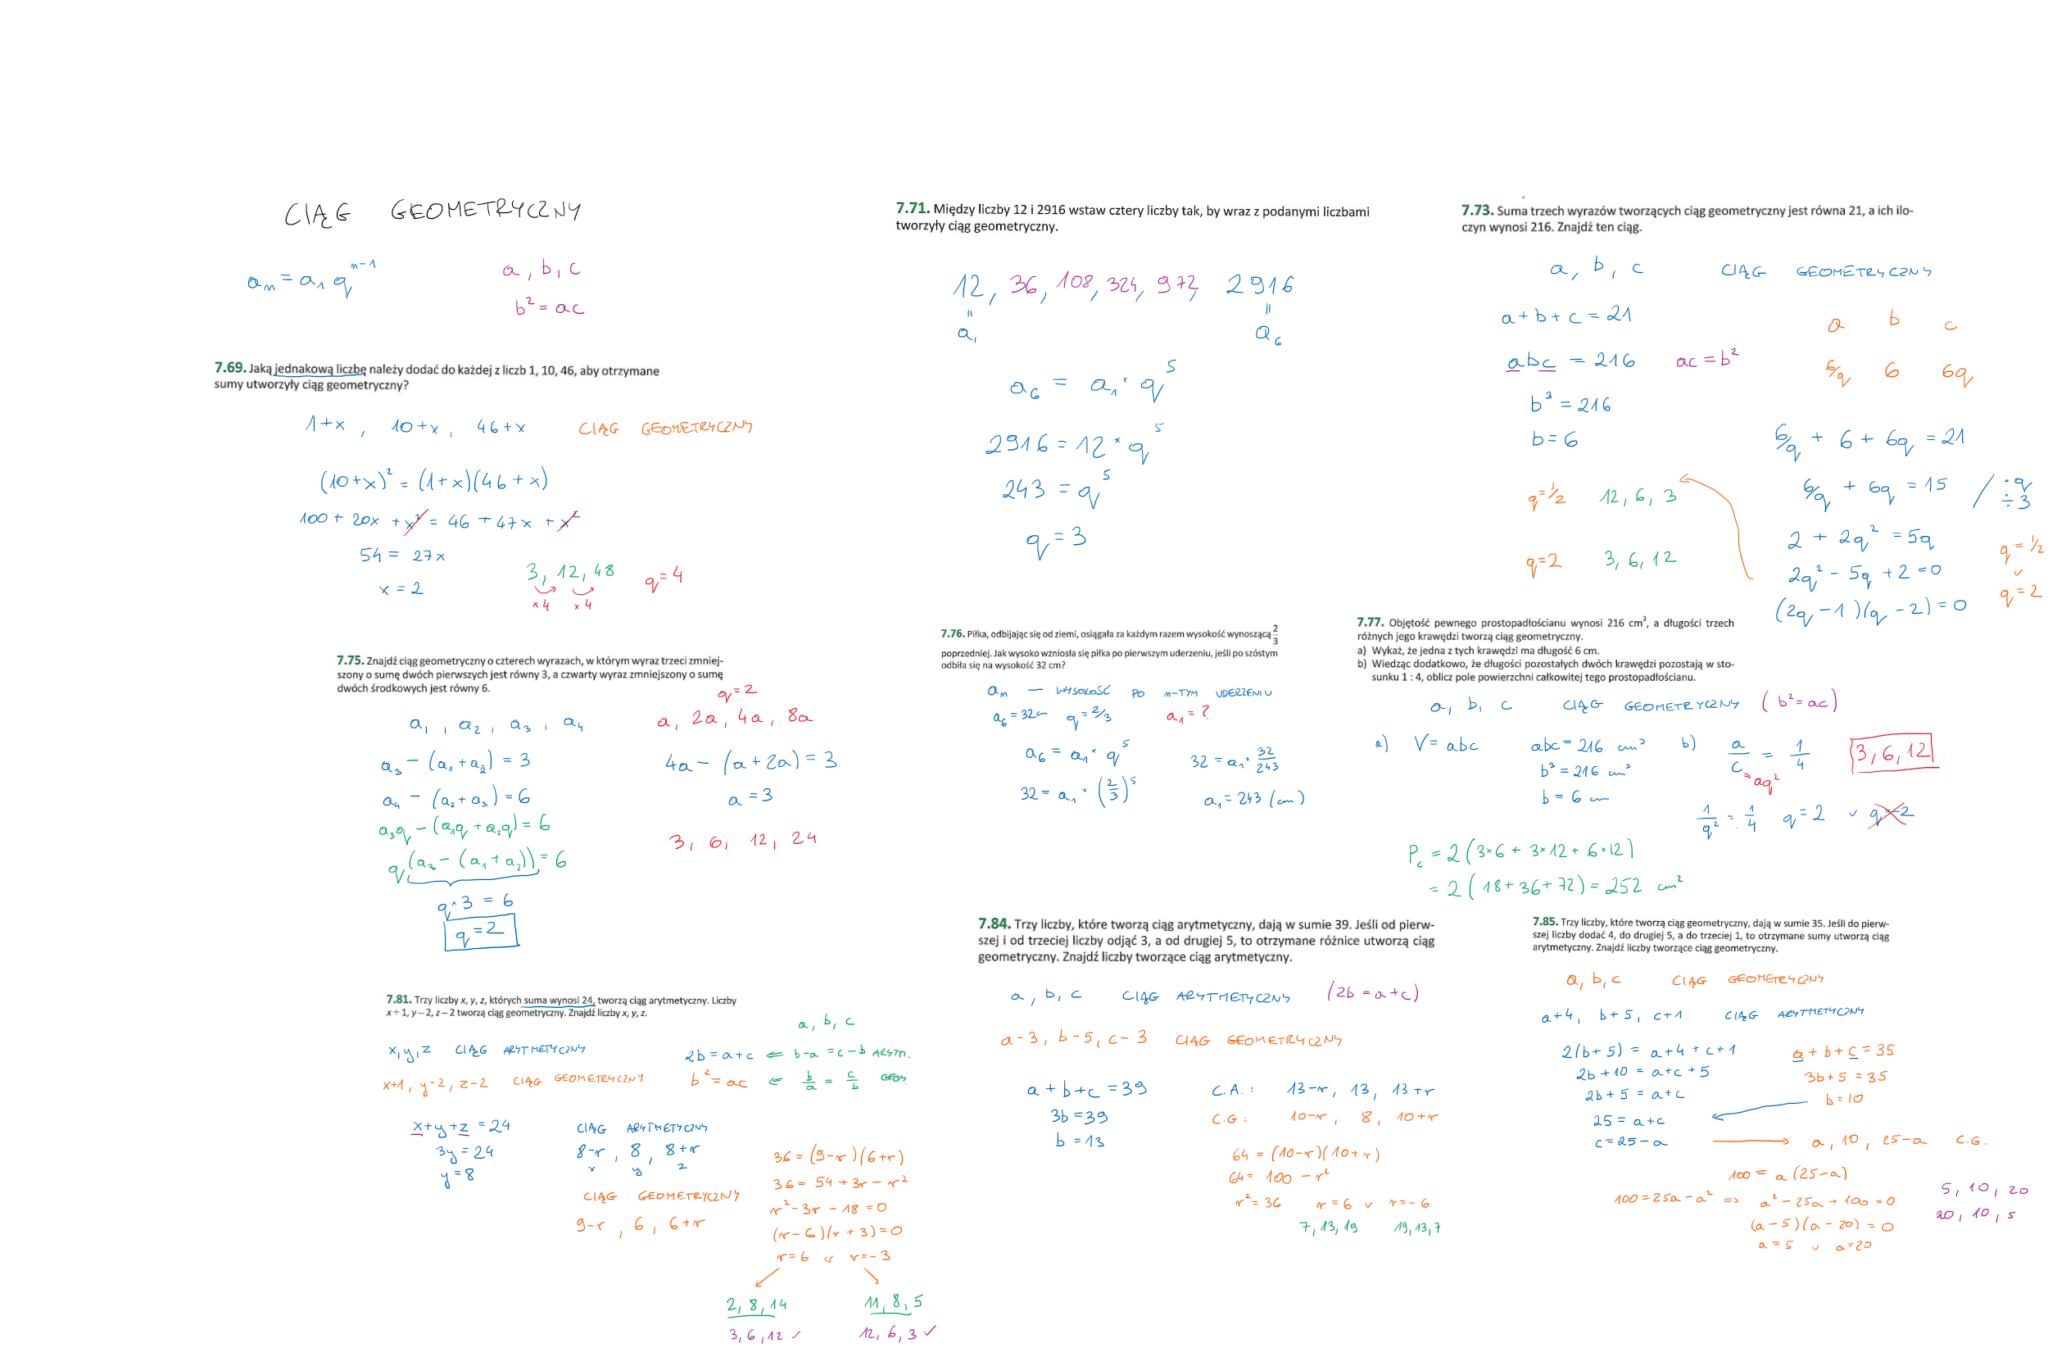 CIĄG GEOMETRYCZNY
aₙ = a₁ qⁿ⁻¹
a, b, c
b² = ac
7.69. Jaką jednakową liczbę należy dodać do każdej z liczb 1, 10, 46, aby otrzymane
sumy utworzyły ciąg geometryczny?
1+x, 10+x, 46+x CIĄG GEOMETRYCZNY
(10+x)² = (1+x)(46+x)
100 + 20x + x² = 46 + 47x + x²
54 = 27x
x = 2
3, 12, 48 q=4
×4 ×4
7.71. Między liczby 12 i 2916 wstaw cztery liczby tak, by wraz z podanymi liczbami
tworzyły ciąg geometryczny.
12, 36, 108, 324, 972, 2916
= =
a₁ a₆
a₆ = a₁ · q⁵
2916 = 12 · q⁵
243 = q⁵
q = 3
7.73. Suma trzech wyrazów tworzących ciąg geometryczny jest równa 21, a ich ilo-
czyn wynosi 216. Znajdź ten ciąg.
a, b, c CIĄG GEOMETRYCZNY
a + b + c = 21
abc = 216 ac = b²
b³ = 216
b = 6
q=½ 12, 6, 3
q=2 3, 6, 12
a b c
6/q 6 6q
6/q + 6 + 6q = 21
6/q + 6q = 15 / ·q ÷3
2 + 2q² = 5q
2q² − 5q + 2 = 0
(2q − 1)(q − 2) = 0
q = ½
∨
q = 2
7.75. Znajdź ciąg geometryczny o czterech wyrazach, w którym wyraz trzeci zmniej-
szony o sumę dwóch pierwszych jest równy 3, a czwarty wyraz zmniejszony o sumę
dwóch środkowych jest równy 6.
a₁, a₂, a₃, a₄
a₃ − (a₁ + a₂) = 3
a₄ − (a₂ + a₃) = 6
a₃q − (a₁q + a₂q) = 6
q(a₃ − (a₁ + a₂)) = 6
q · 3 = 6
q = 2
q = 2
a, 2a, 4a, 8a
4a − (a + 2a) = 3
a = 3
3, 6, 12, 24
7.76. Piłka, odbijając się od ziemi, osiągała za każdym razem wysokość wynoszącą 2/3
poprzedniej. Jak wysoko wzniosła się piłka po pierwszym uderzeniu, jeśli po szóstym
odbiła się na wysokość 32 cm?
aₙ — WYSOKOŚĆ PO n-TYM UDERZENIU
a₆ = 32cm q = 2/3 a₁ = ?
a₆ = a₁ · q⁵
32 = a₁ · (2/3)⁵
32 = a₁ · 32/243
a₁ = 243 (cm)
7.77. Objętość pewnego prostopadłościanu wynosi 216 cm³, a długości trzech
różnych jego krawędzi tworzą ciąg geometryczny.
a) Wykaż, że jedna z tych krawędzi ma długość 6 cm.
b) Wiedząc dodatkowo, że długości pozostałych dwóch krawędzi pozostają w sto-
sunku 1 : 4, oblicz pole powierzchni całkowitej tego prostopadłościanu.
a, b, c CIĄG GEOMETRYCZNY (b² = ac)
a) V = abc
abc = 216 cm³
b³ = 216 cm³
b = 6 cm
b) a/c = 1/4 3, 6, 12
= aq²
1/q² = 1/4 q = 2 ∨ q = −2
P_c = 2(3·6 + 3·12 + 6·12)
= 2(18 + 36 + 72) = 252 cm²
7.81. Trzy liczby x, y, z, których suma wynosi 24, tworzą ciąg arytmetyczny. Liczby
x + 1, y – 2, z – 2 tworzą ciąg geometryczny. Znajdź liczby x, y, z.
x, y, z CIĄG ARYTMETYCZNY
x+1, y−2, z−2 CIĄG GEOMETRYCZNY
a, b, c
2b = a+c ⇐ b−a = c−b ARYTM.
b² = ac ⇐ b/a = c/b GEOM.
x+y+z = 24
3y = 24
y = 8
CIĄG ARYTMETYCZNY
8−r, 8, 8+r
x y z
CIĄG GEOMETRYCZNY
9−r, 6, 6+r
36 = (9−r)(6+r)
36 = 54 + 3r − r²
r² − 3r − 18 = 0
(r − 6)(r + 3) = 0
r = 6 ∨ r = −3
2, 8, 14 11, 8, 5
3, 6, 12 ✓ 12, 6, 3 ✓
7.84. Trzy liczby, które tworzą ciąg arytmetyczny, dają w sumie 39. Jeśli od pierw-
szej i od trzeciej liczby odjąć 3, a od drugiej 5, to otrzymane różnice utworzą ciąg
geometryczny. Znajdź liczby tworzące ciąg arytmetyczny.
a, b, c CIĄG ARYTMETYCZNY (2b = a+c)
a−3, b−5, c−3 CIĄG GEOMETRYCZNY
a + b + c = 39
3b = 39
b = 13
C.A.: 13−r, 13, 13+r
C.G: 10−r, 8, 10+r
64 = (10−r)(10+r)
64 = 100 − r²
r² = 36 r = 6 ∨ r = −6
7, 13, 19 19, 13, 7
7.85. Trzy liczby, które tworzą ciąg geometryczny, dają w sumie 35. Jeśli do pierw-
szej liczby dodać 4, do drugiej 5, a do trzeciej 1, to otrzymane sumy utworzą ciąg
arytmetyczny. Znajdź liczby tworzące ciąg geometryczny.
a, b, c CIĄG GEOMETRYCZNY
a+4, b+5, c+1 CIĄG ARYTMETYCZNY
2(b+5) = a+4 + c+1
2b + 10 = a+c + 5
2b + 5 = a+c
25 = a+c
c = 25 − a
a + b + c = 35
3b + 5 = 35
b = 10
a, 10, 25−a C.G.
100 = a(25−a)
100 = 25a − a² ⇒ a² − 25a + 100 = 0
(a − 5)(a − 20) = 0
a = 5 ∨ a = 20
5, 10, 20
20, 10, 5